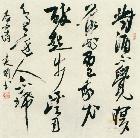 對酒不覺暝
落花盈我衣
醉起步溪月
鳥還人亦稀